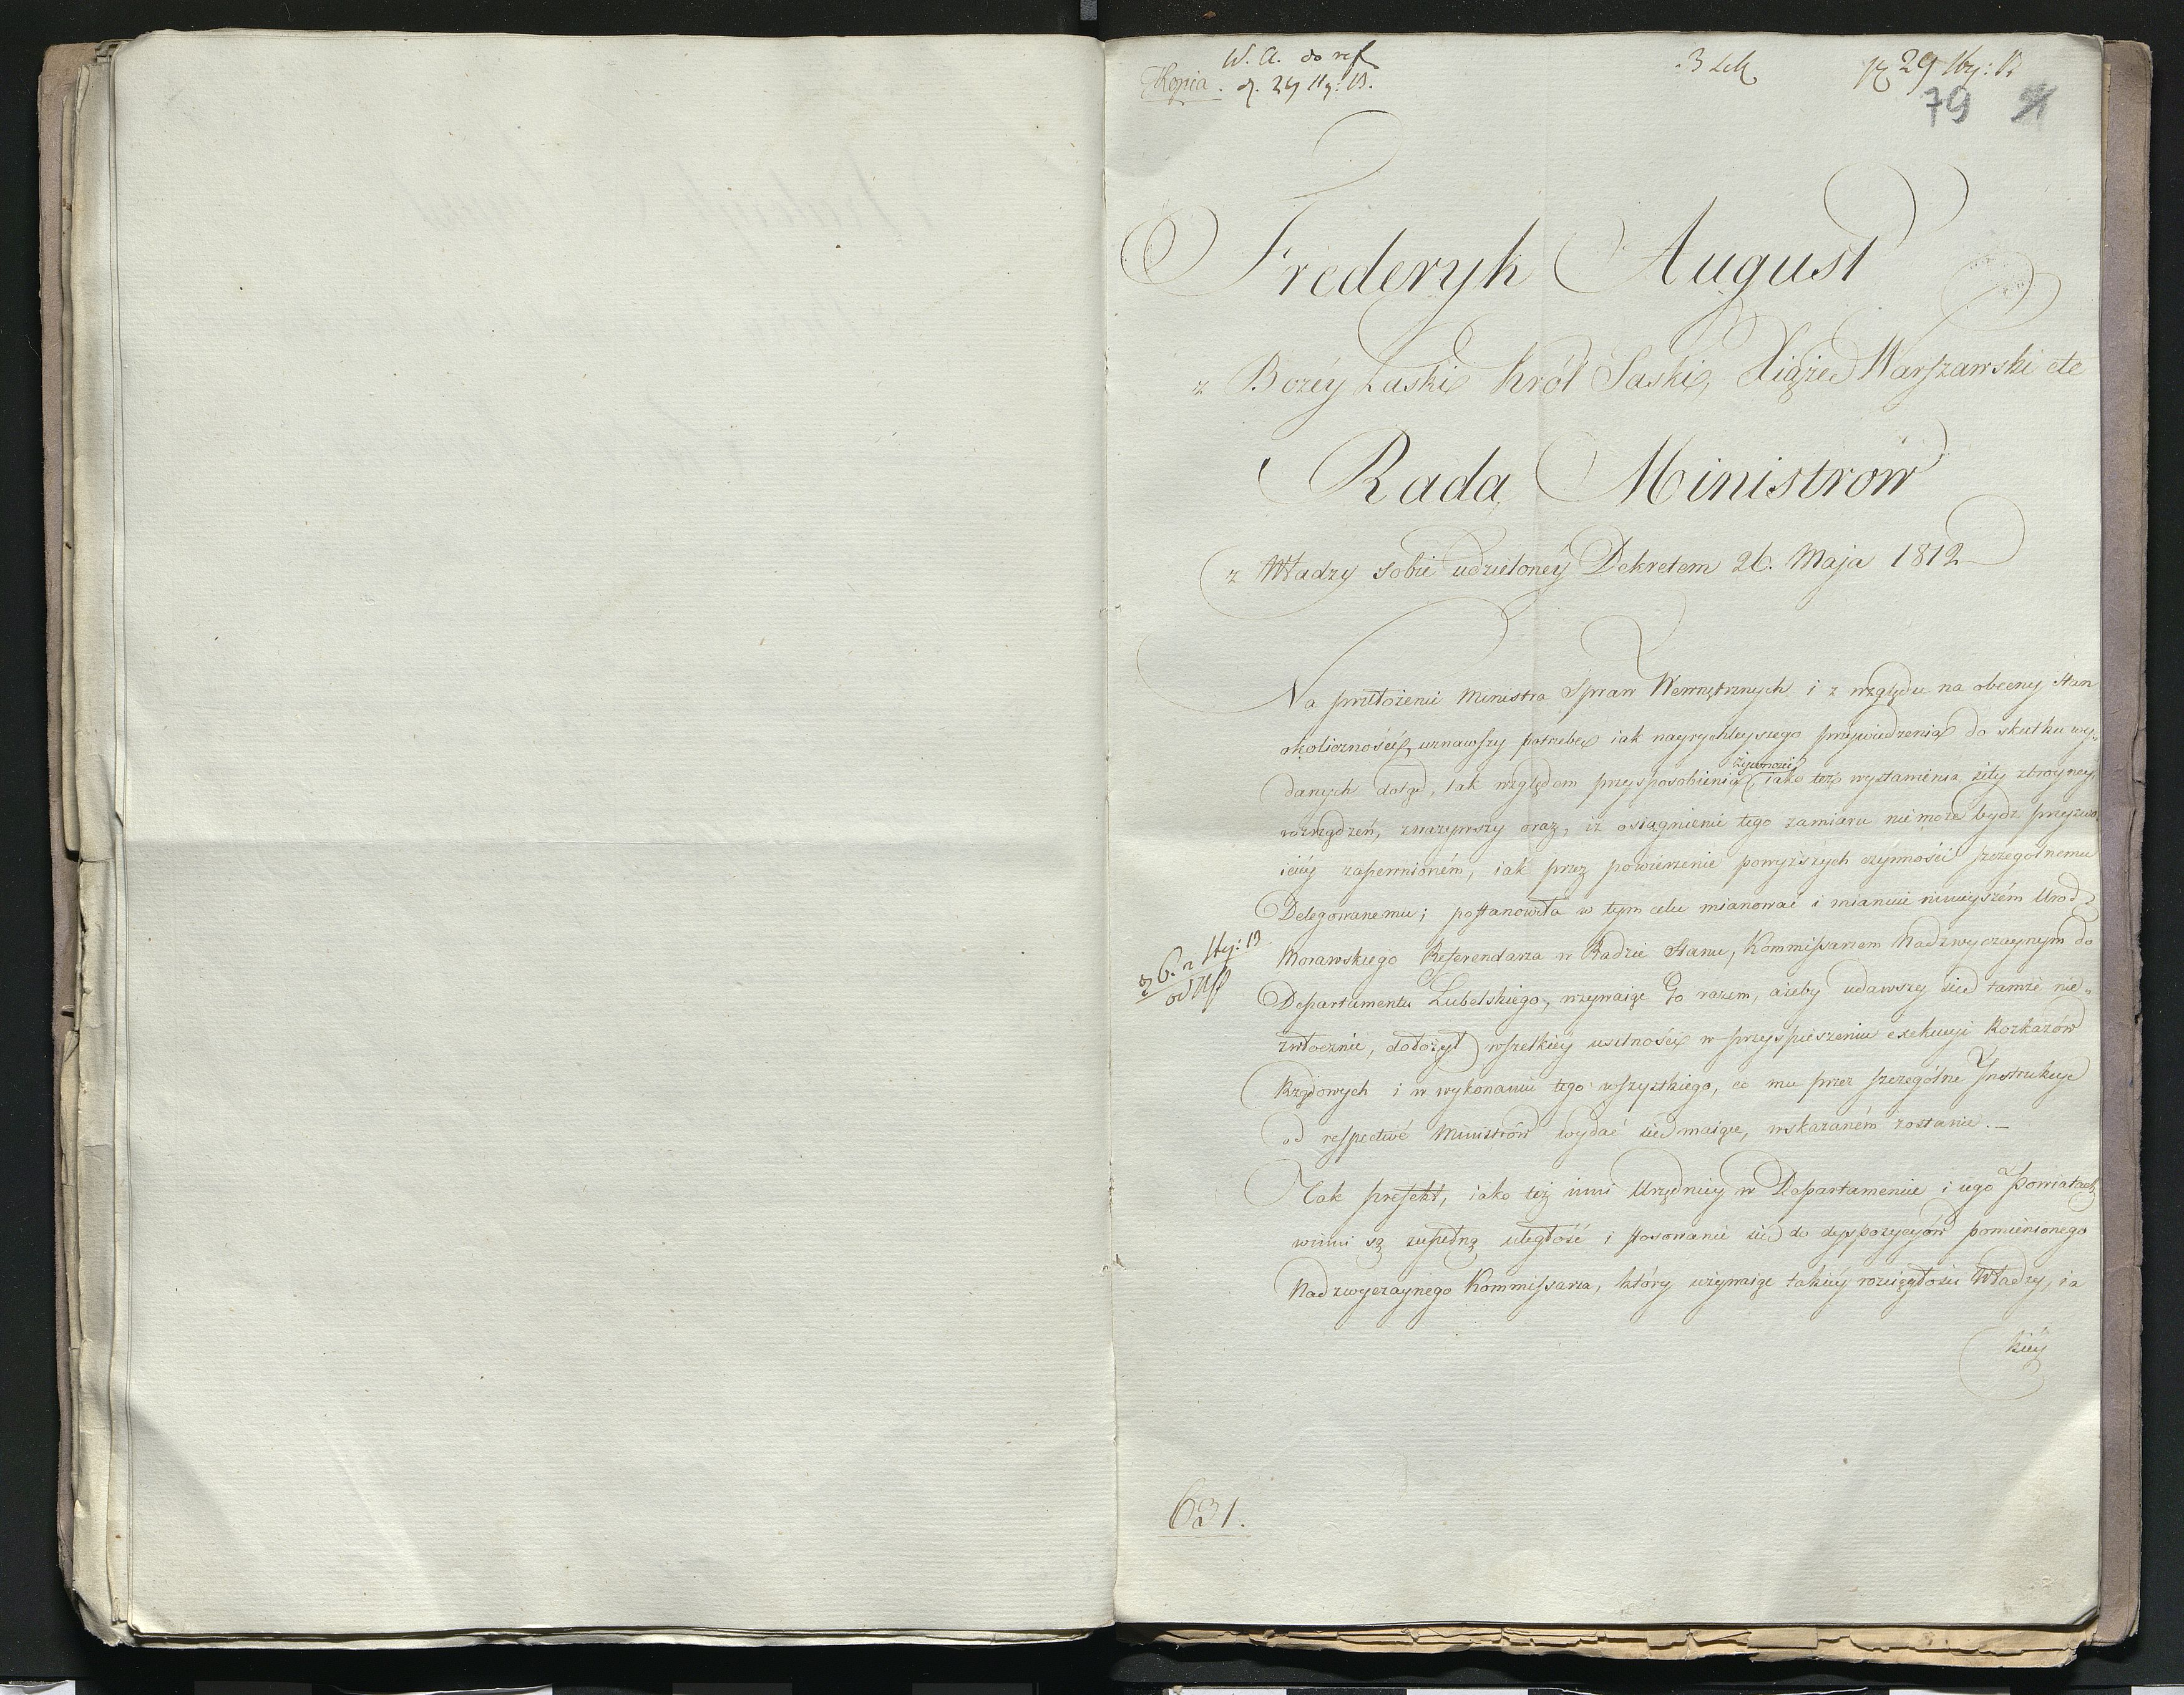 Kopia. W. A. do ref
d. 29 Sty: 13.
3 Sek
pr 29 Sty: 13
79
Frederyk August
z Bożéy Łaski Król Saski, Xiąże Warszawski etc
Rada Ministrów
z Władzy sobie udzielonéy Dekretem 26. Maja 1812
Na przełożenie Ministra Spraw Wewnętrznych i z względu na obecny stan
okoliczności, uznawszy potrzebę iak nayrychleyszego przywiedzenia do skutku wy-
danych dotąd, tak względem przysposobienia żywności, iako też wystawienia siły zbroyney,
rozrządzeń, zważywszy oraz, iż osiągnienie tego zamiaru nie może bydź przyzwo-
iciéy zapewnioném, iak przez powierzenie powyższych czynności szczególnemu
Delegowanemu; postanowiła w tym celu mianować i mianuie ninieyszém Urod.
Morawskiego Referendarza w Radzie Stanu, Kommissarzem Nadzwyczaynym do
Departamentu Lubelskiego, wzywaiąc Go razem, ażeby udawszy się tamże nie-
zwłocznie, dołożył wszelkiéy usilności w przyspieszeniu exekucyi Rozkazów
Rządowych i w wykonaniu tego wszystkiego, co mu przez szczególne Instrukcye
od respective Ministrów wydać się maiące, wskazaném zostanie. —
Tak Prefekt, iako też inni Urzędnicy w Departamencie i iego Powiatach
winni są zupełną uległość i stosowanie się do dyspozycyów pomienionego
Nadzwyczaynego Kommissarza, który używaiąc takiéy rozciągłości Władzy, ia
kiéy
631.